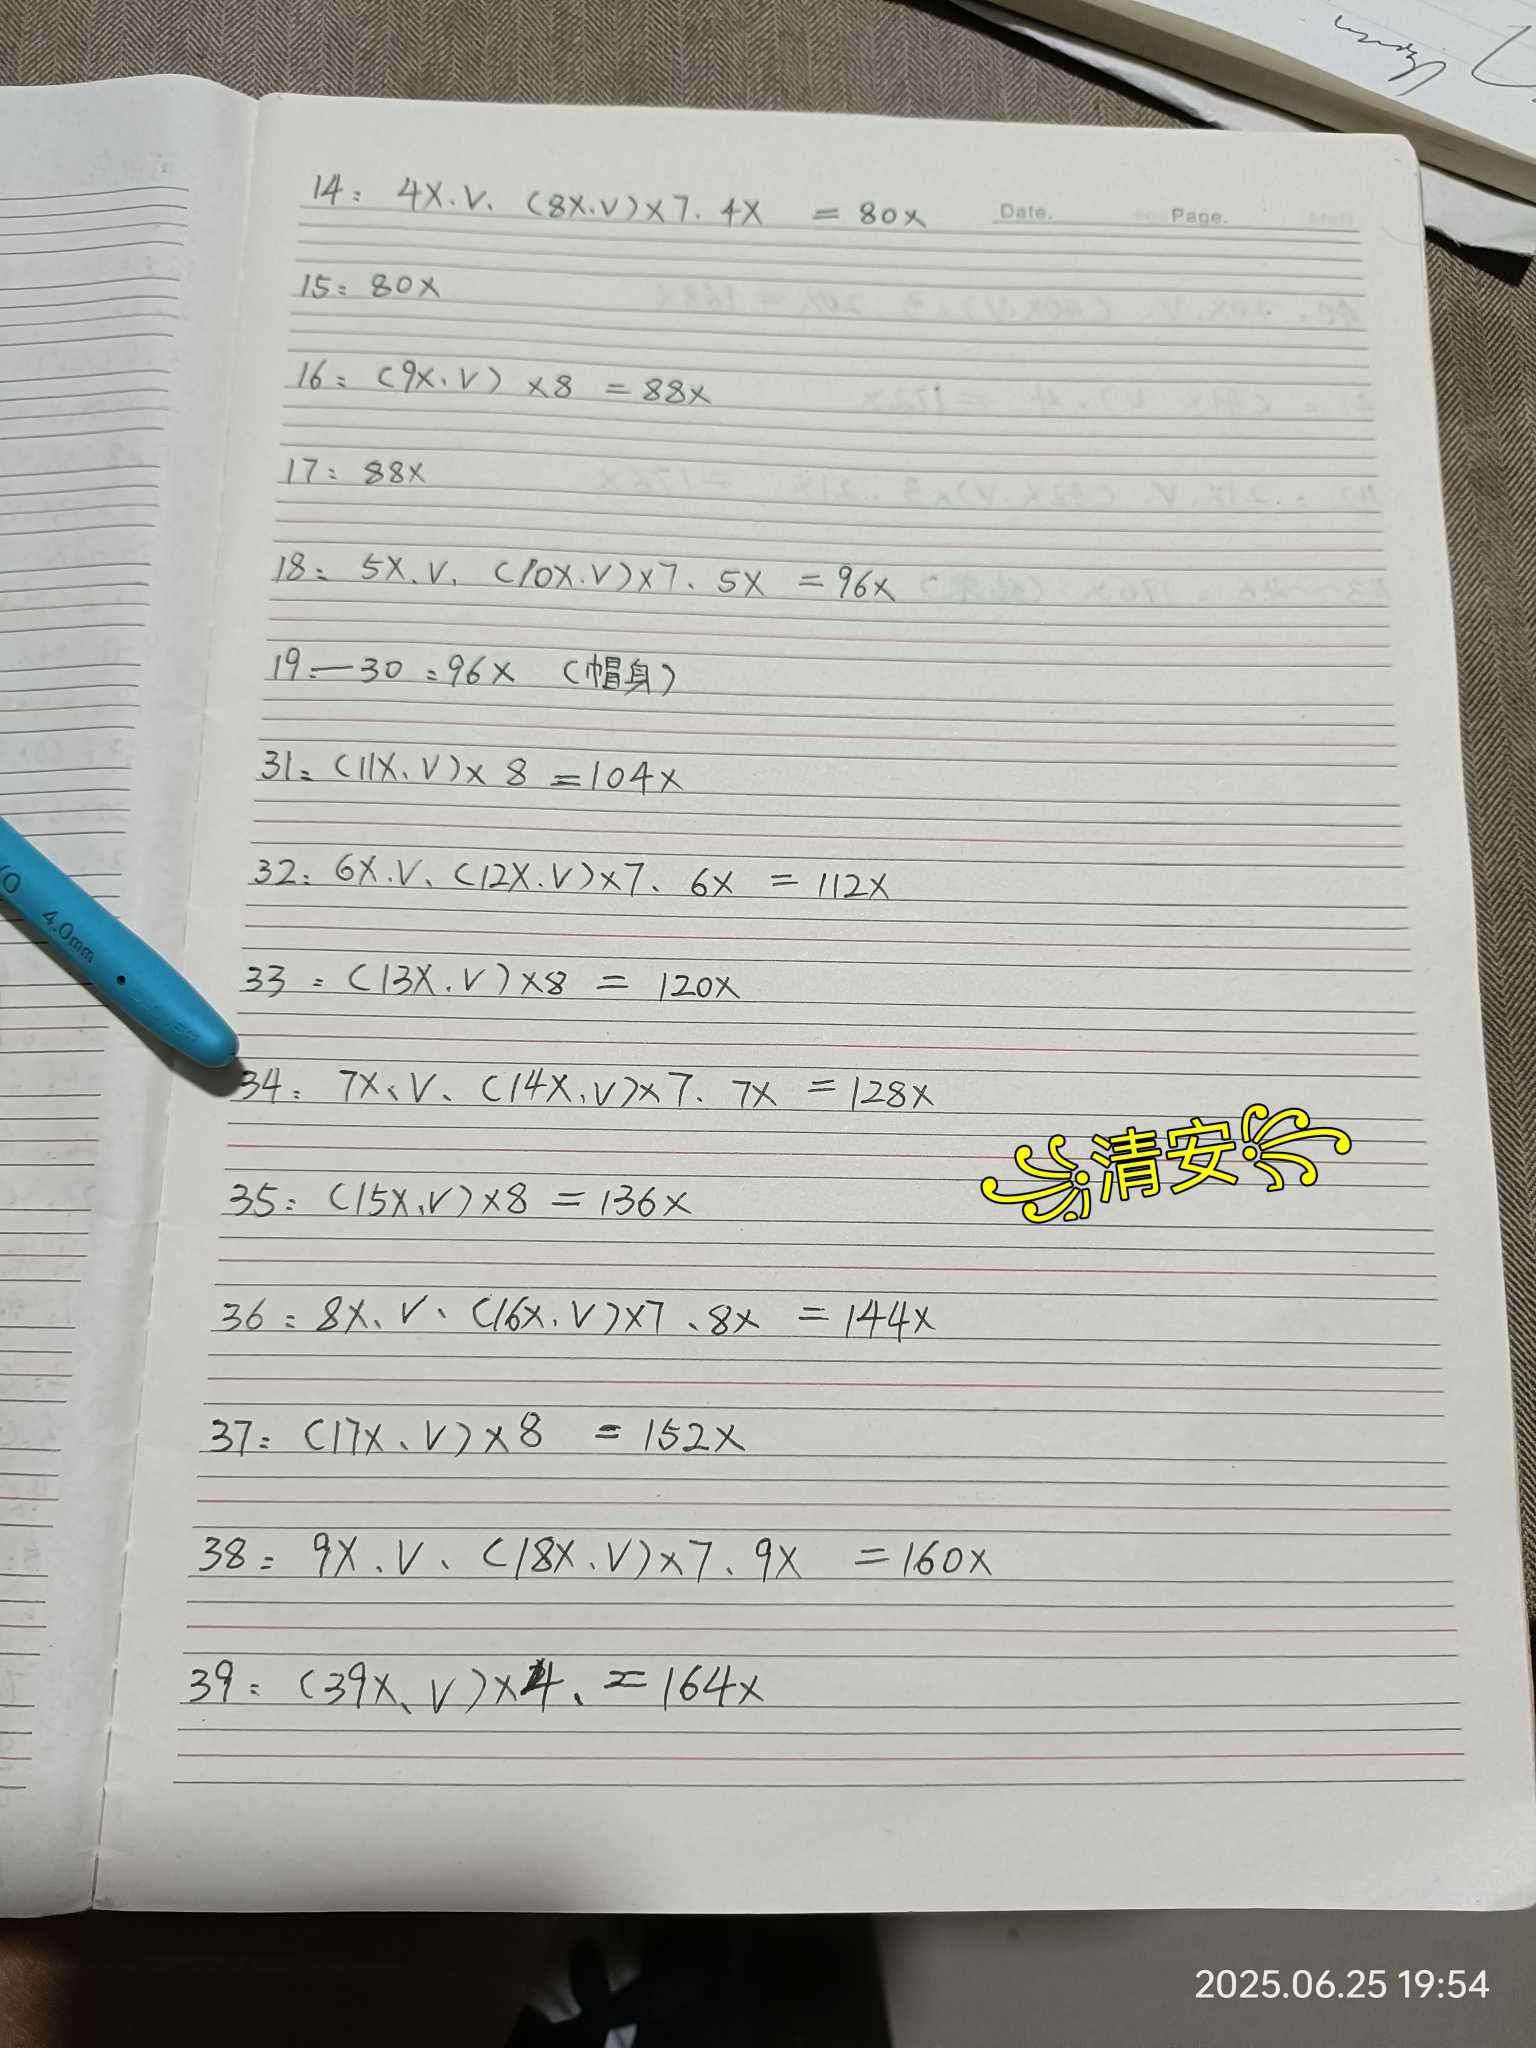 14: 4X.V、(8X.V)×7. 4X = 80x
Date. Page.
15: 80X
16: (9X.V) ×8 = 88x
17: 88X
18: 5X.V、(10X.V)×7. 5X = 96x
19—30:96X (帽身)
31: (11X、V)×8 = 104x
32: 6X.V、(12X.V)×7、6X = 112X
33: (13X.V)×8 = 120x
34: 7X、V、(14X、V)×7. 7X = 128X
清安
35: (15X.V)×8 = 136X
36: 8X、V、(16X.V)×7、8X = 144X
37: (17X、V)×8 = 152X
38: 9X.V、(18X、V)×7、9X = 160X
39: (39X、V)×4、= 164X
4.0mm
2025.06.25 19:54